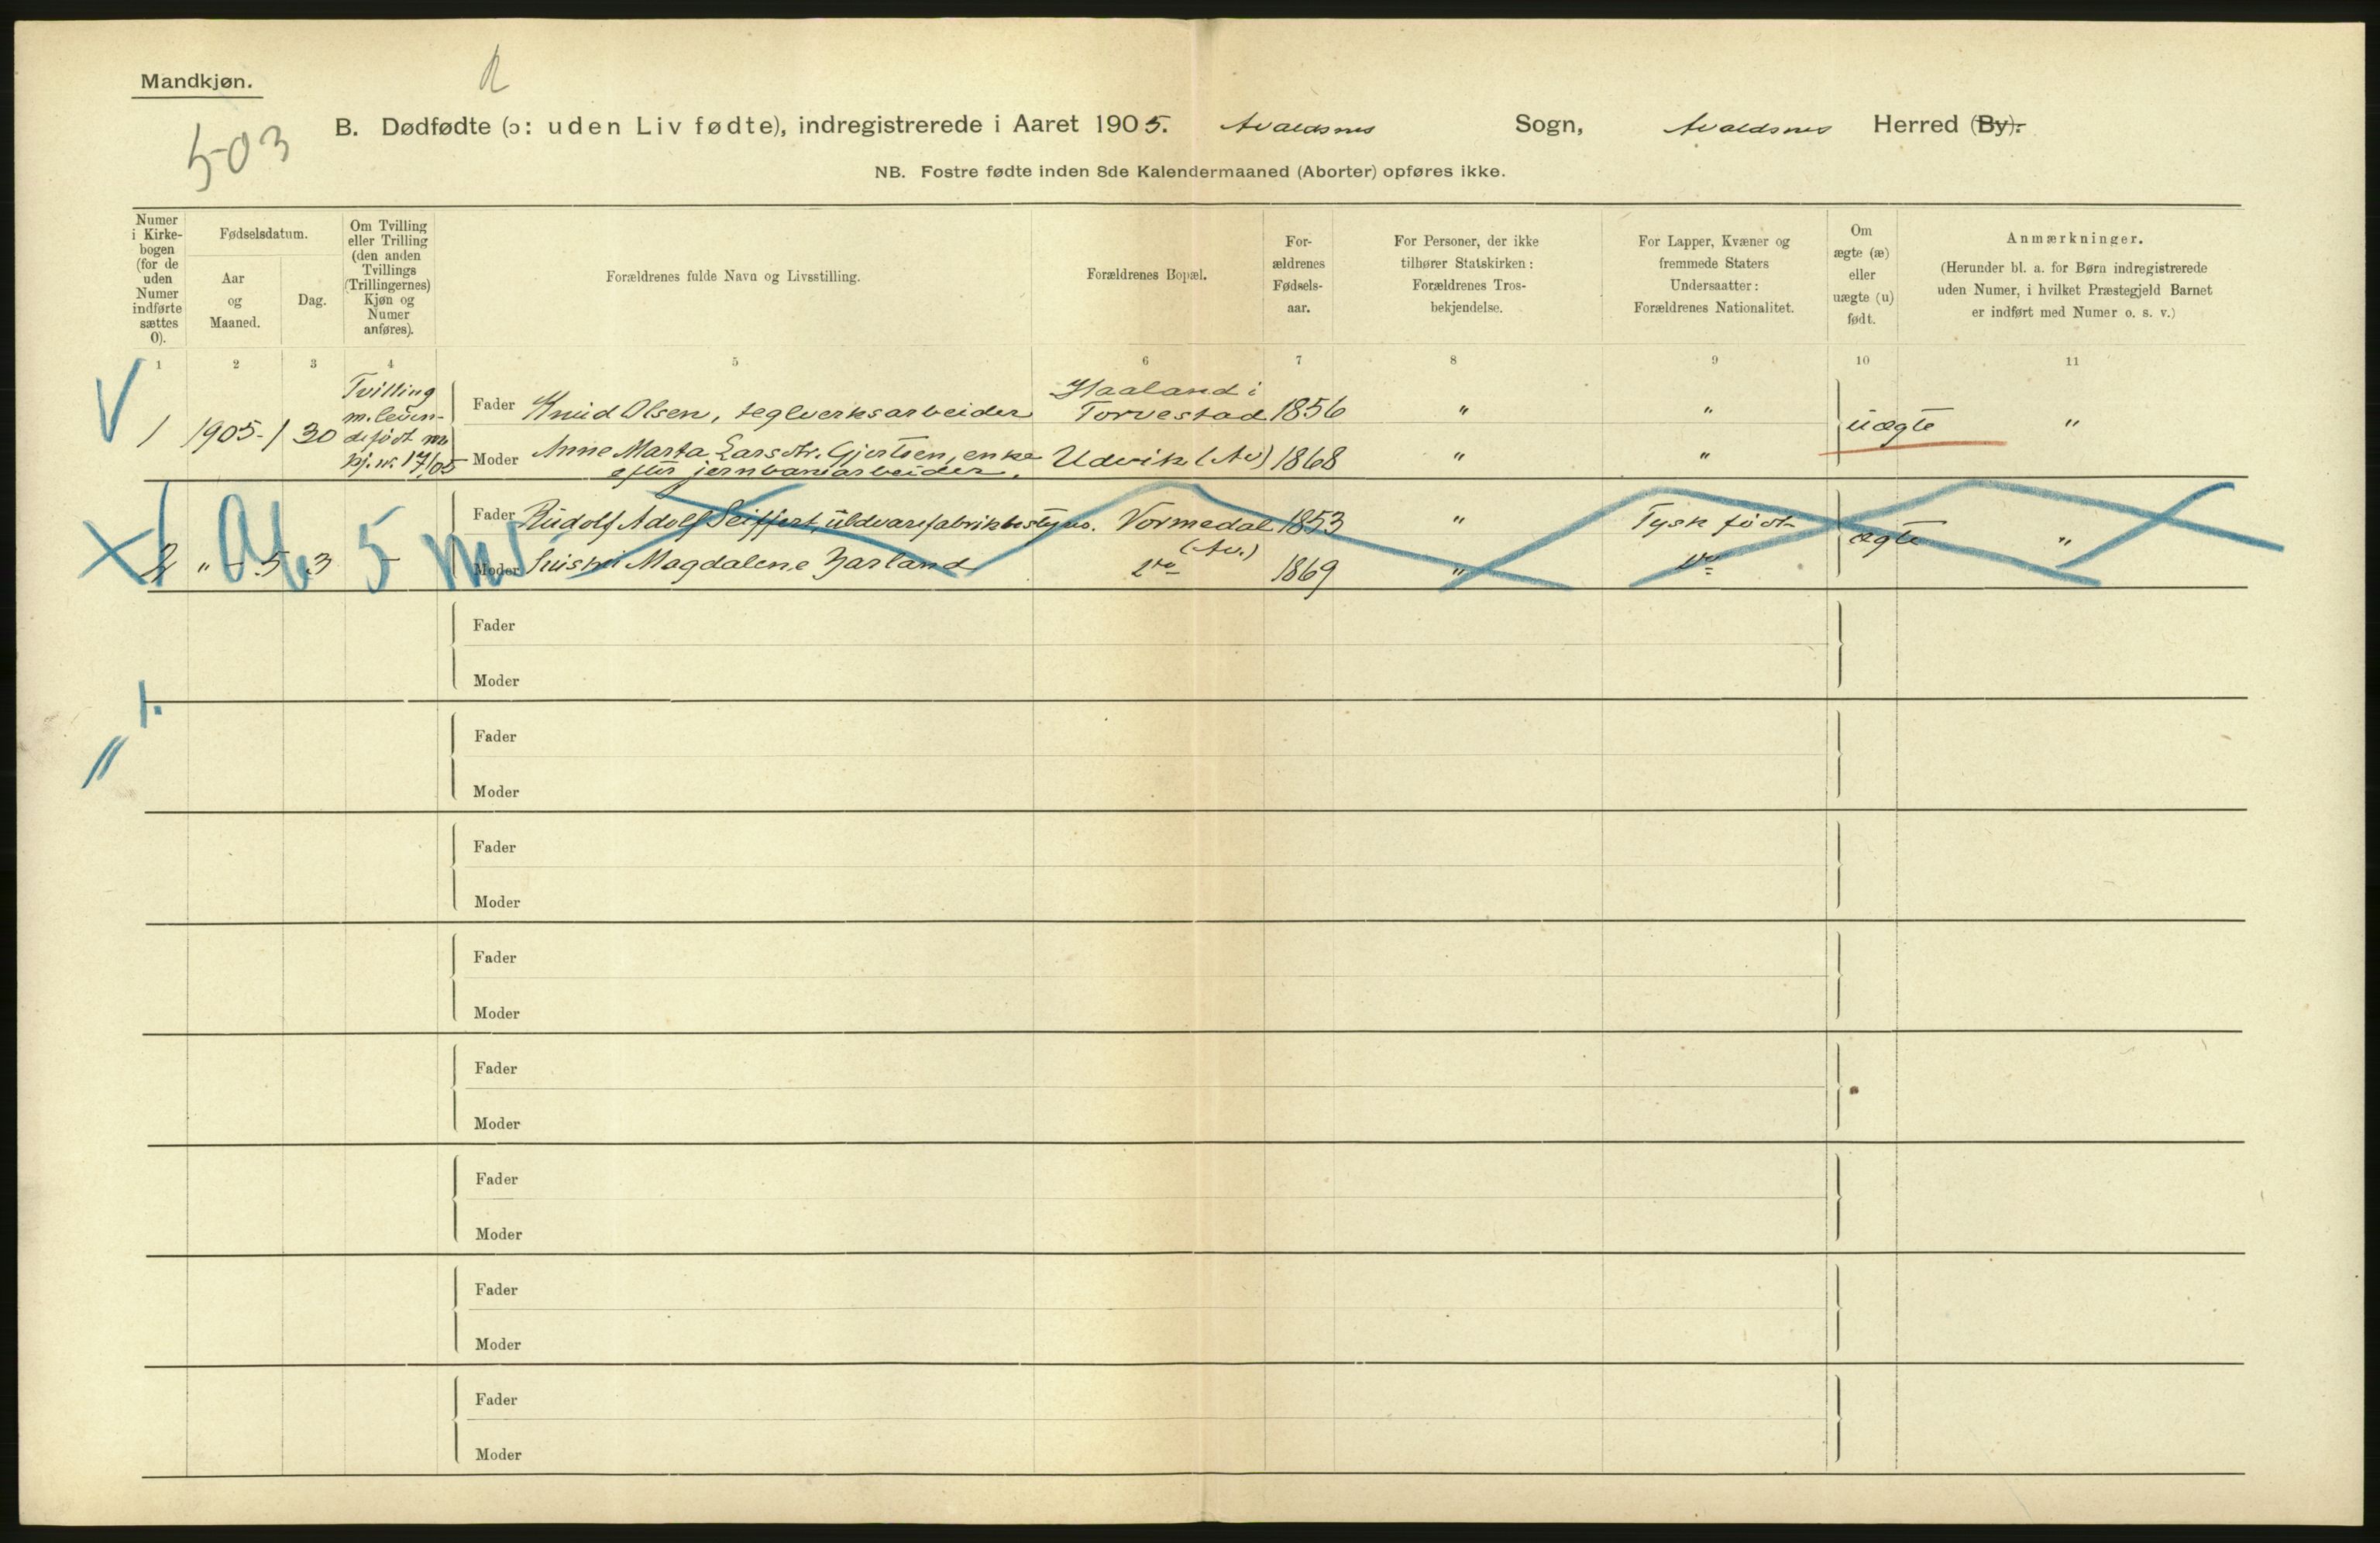 Mandkjøn.
R
503
B. Dødfødte (ɔ: uden Liv fødte), indregistrerede i Aaret 1905. Avaldsnes Sogn, Avaldsnes Herred (By).
NB. Fostre fødte inden 8de Kalendermaaned (Aborter) opføres ikke.
Numer
i Kirke-
bogen
(for de
uden
Numer
indførte
sættes
0).
Fødselsdatum.
Aar
og
Maaned.
Dag.
Om Tvilling
eller Trilling
(den anden
Tvillings
(Trillingernes)
Kjøn og
Numer
anføres).
Forældrenes fulde Navn og Livsstilling.
Forældrenes Bopæl.
For-
ældrenes
Fødsels-
aar.
For Personer, der ikke
tilhører Statskirken:
Forældrenes Tros-
bekjendelse.
For Lapper, Kvæner og
fremmede Staters
Undersaatter:
Forældrenes Nationalitet.
Om
ægte (æ)
eller
uægte (u)
født.
Anmærkninger.
(Herunder bl. a. for Børn indregistrerede
uden Numer, i hvilket Præstegjeld Barnet
er indført med Numer o. s. v.)
1 2 3 4 5 6 7 8 9 10 11
V
1 1905-1 30
Tvilling
m. leven-
de født m
kj. nr. 17/05
Fader Knud Olsen, teglverksarbeider
Haaland i
Torvestad 1856 " "
Moder Anne Marta Larsdtr. Gjertsen, enke
efter jernbanearbeider.
Udvik (Av) 1868 " "
uægte "
2 " - 5 3 -
Ab 5 m
Fader Rudolf Adolf Seiffert, uldvarefabrikbestyrer. Vormedal 1853 " Tysk født
(Av.)
Moder Magdalene Garland do 1869 " do
ægte "
Fader
Moder
1.
"
Fader
Moder
Fader
Moder
Fader
Moder
Fader
Moder
Fader
Moder
Fader
Moder
Fader
Moder